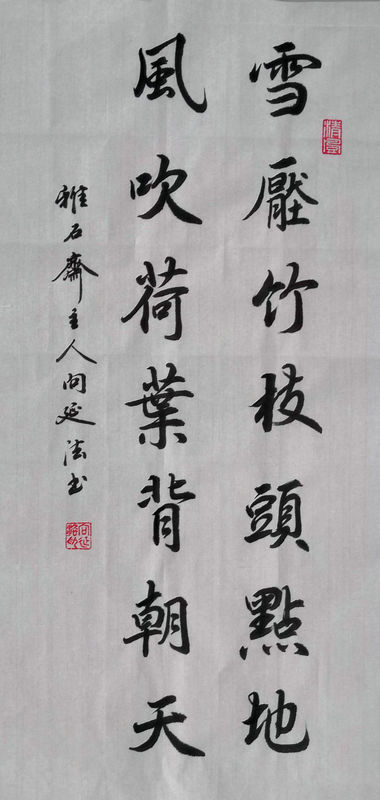 雪壓竹枝頭點地
風吹荷葉背朝天
雅石齋主人向延法書